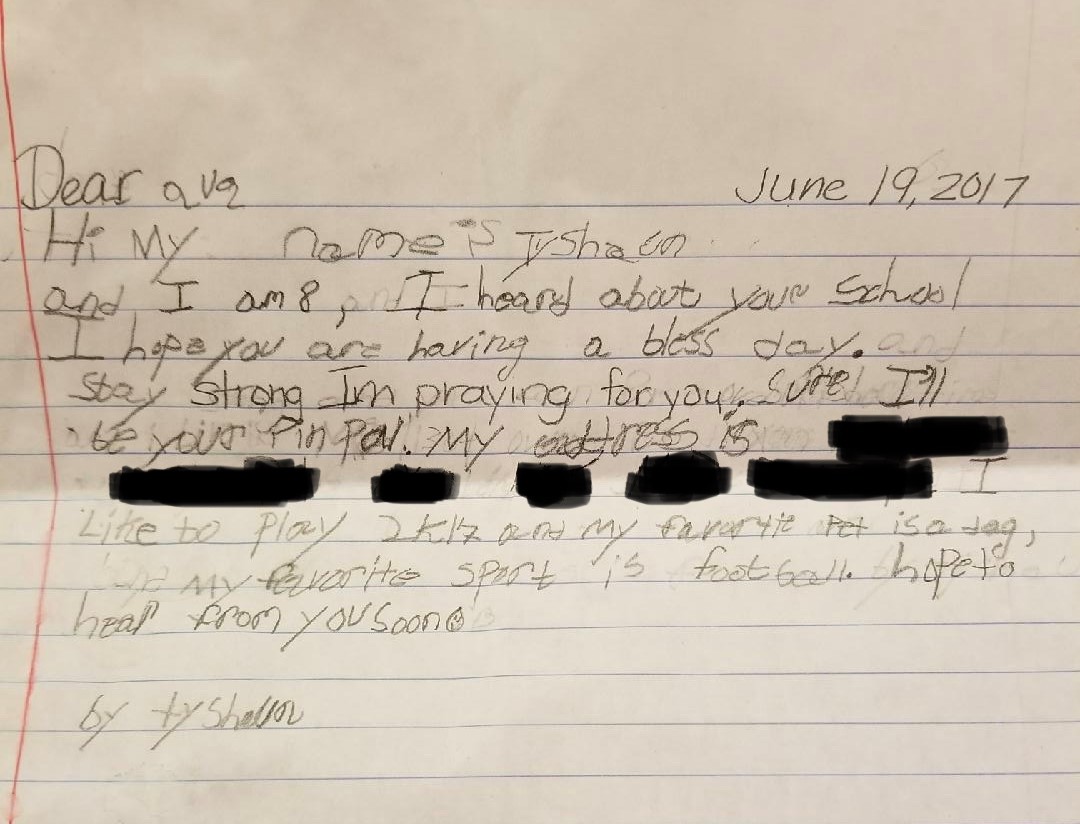 Dear ava June 19, 2017
Hi My name is Tyshaun
and I am 8, I heard about your School
I hope you are having a bless day.
Stay strong Im praying for you. Sure! I'll
be your Pin Pal. My address is
I
Like to Play 2K17 and my favorite Pet is a dog,
My favorite sport is football. hope to
hear from you soon
by tyshaun